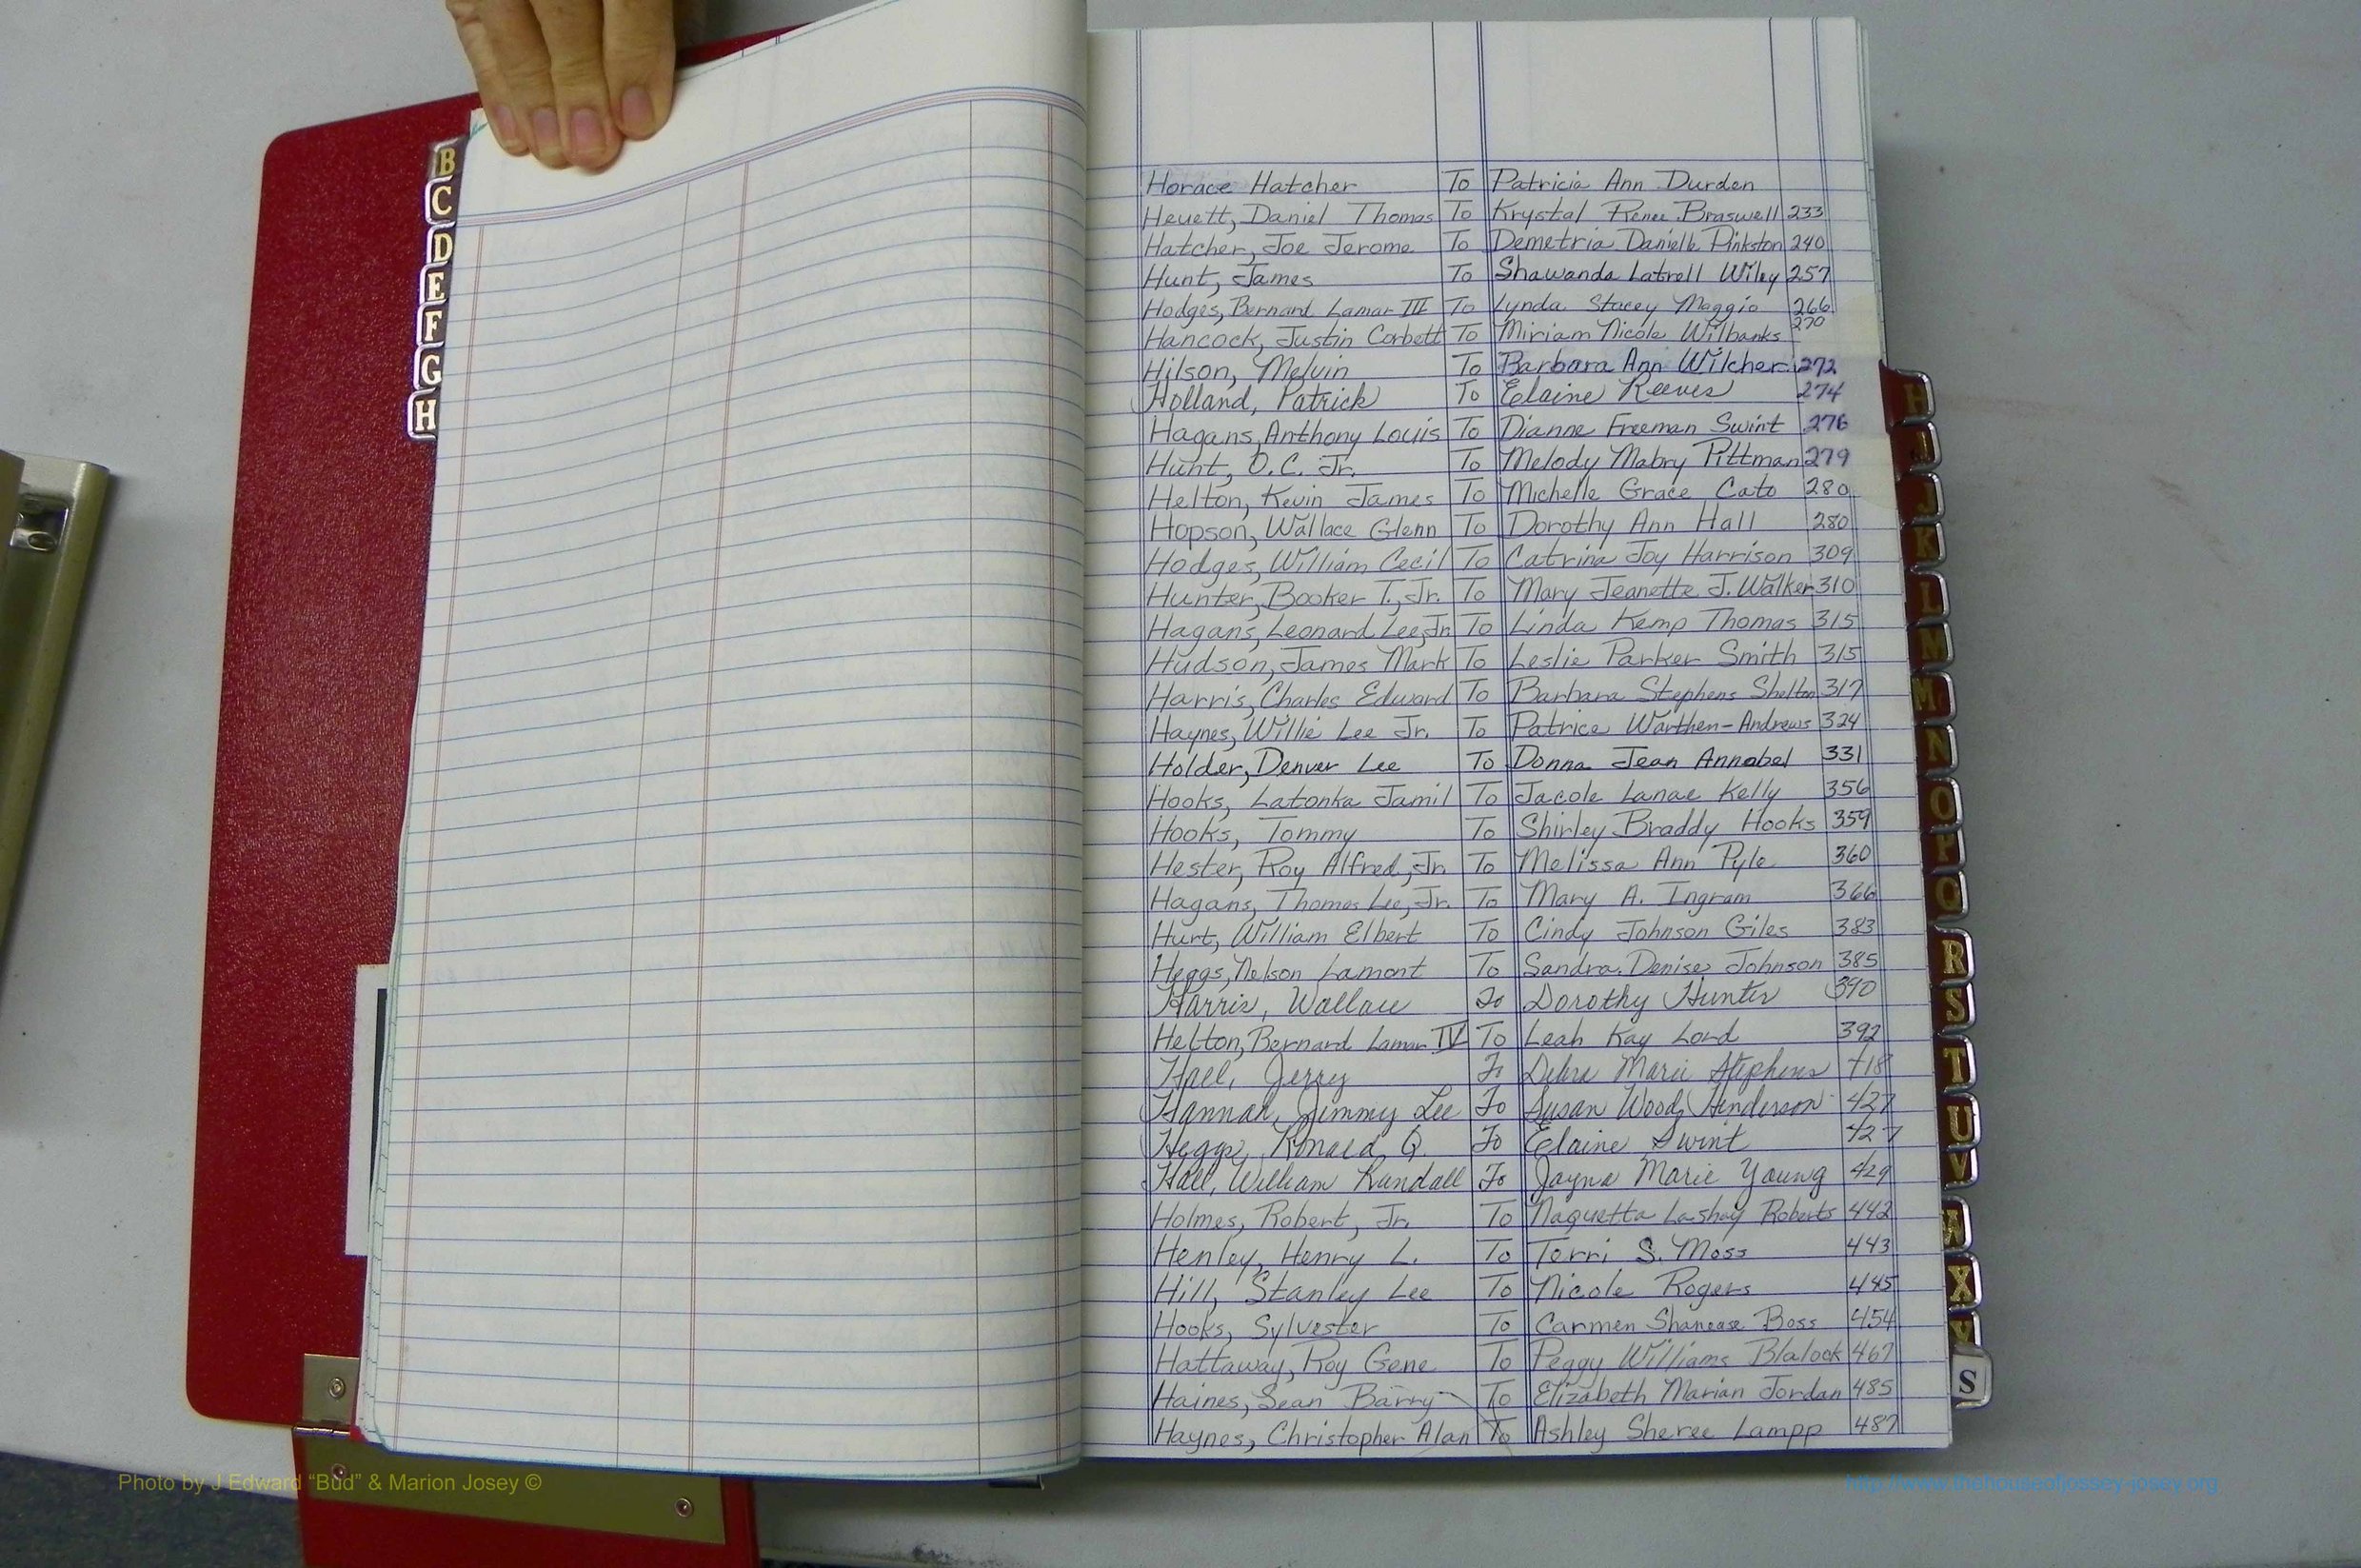 B
C
D
E
F
G
H
Horace Hatcher To Patricia Ann Durden
Heuett, Daniel Thomas To Krystal Renee Braswell 233
Hatcher, Joe Jerome To Demetria Danielle Pinkston 240
Hunt, James To Shawanda Latrell Wiley 257
Hodges, Bernard Lamar III To Lynda Stacey Maggio 266
Hancock, Justin Corbett To Miriam Nicole Wilbanks 270
Hilson, Melvin To Barbara Ann Wilcher 272
Holland, Patrick To Elaine Reeves 274
Hagans, Anthony Louis To Dianne Freeman Swint 276
Hunt, O.C. Jr. To Melody Mabry Pittman 279
Helton, Kevin James To Michelle Grace Cato 280
Hopson, Wallace Glenn To Dorothy Ann Hall 280
Hodges, William Cecil To Catrina Joy Harrison 309
Hunter, Booker T., Jr. To Mary Jeanette J. Walker 310
Hagans, Leonard Lee, Jr. To Linda Kemp Thomas 315
Hudson, James Mark To Leslie Parker Smith 315
Harris, Charles Edward To Barbara Stephens Shelton 317
Haynes, Willie Lee Jr. To Patrice Warthen-Andrews 324
Holder, Denver Lee To Donna Jean Annabel 331
Hooks, Latonka Jamil To Jacole Lanae Kelly 356
Hooks, Tommy To Shirley Braddy Hooks 359
Hester, Roy Alfred, Jr. To Melissa Ann Pyle 360
Hagans, Thomas Lee, Jr. To Mary A. Ingram 366
Hurt, William Elbert To Cindy Johnson Giles 383
Heggs, Nelson Lamont To Sandra Denise Johnson 385
Harris, Wallace To Dorothy Hunter 390
Helton, Bernard Lamar IV To Leah Kay Lord 392
Hall, Jerry To Debra Marie Stephens 418
Hannah, Jimmy Lee To Susan Woods Henderson 427
Heggs, Ronald Q. To Elaine Swint 427
Hall, William Randall To Jayna Marie Young 429
Holmes, Robert, Jr. To Naquetta Lashay Roberts 442
Henley, Henry L. To Terri S. Moss 443
Hill, Stanley Lee To Nicole Rogers 445
Hooks, Sylvester To Carmen Shanease Boss 454
Hattaway, Roy Gene To Peggy Williams Blalock 467
Haines, Sean Barry To Elizabeth Marian Jordan 485
Haynes, Christopher Alan To Ashley Sheree Lampp 487
H
J
K
L
M
M
N
O
P
Q
R
S
T
U
V
W
X
Y
S
Photo by J Edward "Bud" & Marion Josey ©
http://www.thehouseofjossey-josey.org